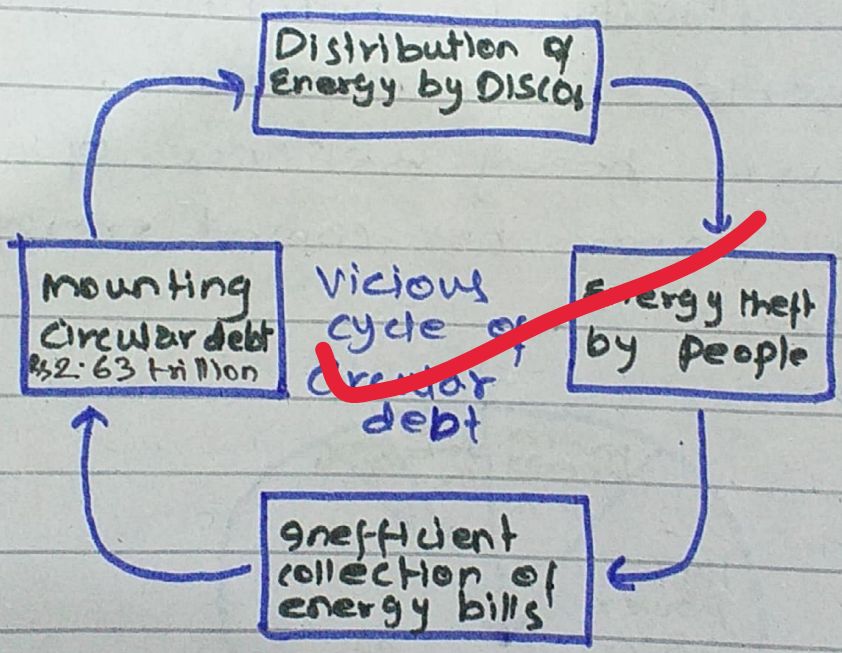 Distribution of
Energy by DISCOs
Energy theft
by people
Inefficient
collection of
energy bills
mounting
circular debt
Rs2.63 trillion
Vicious
cycle of
circular
debt